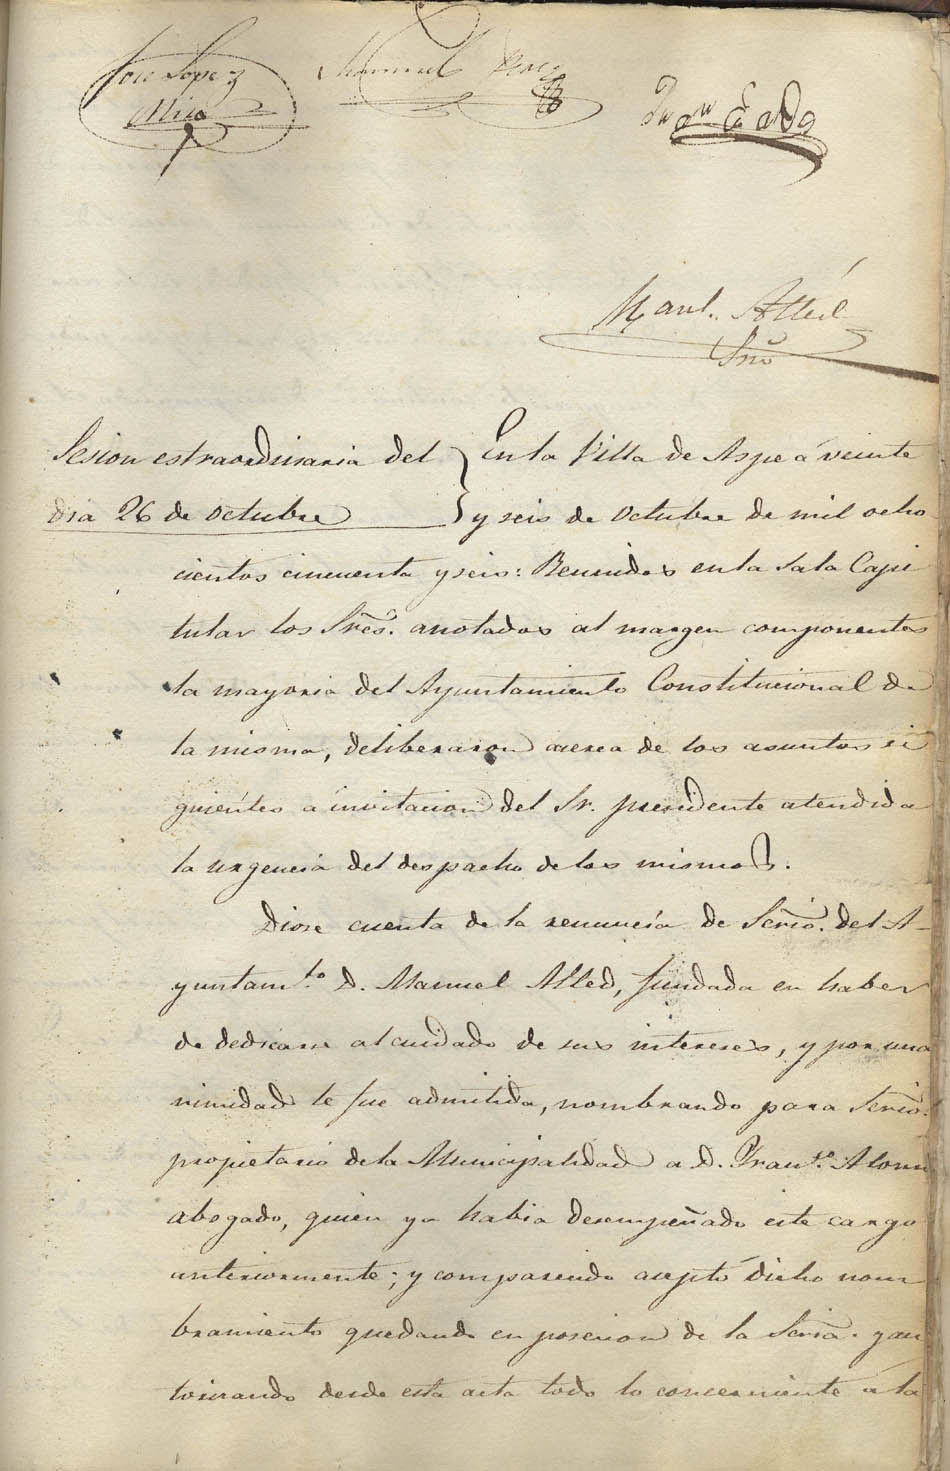 José Lopez Manuel
Mira
Juan Cerdá
Manl. Alted
Srio
Sesion estraordinaria del
dia 26 de octubre
En la Villa de Aspe á veinte
y seis de Octubre de mil ocho
cientos cincuenta y seis: Reunidos en la Sala Capi
tular los Sres. anotados al margen componentes
la mayoria del Ayuntamiento Constitucional de
la misma, deliberaron acerca de los asuntos si
guientes a invitacion del Sr. presidente atendida
la urgencia del despacho de los mismos.
Diose cuenta de la renuncia de Serio. del A-
yuntamto. D. Manuel Alted, fundada en haber
de dedicarse al cuidado de sus intereses, y por una
nimidad le fue admitida, nombrando para Serio.
propietario de la Municipalidad a D. Franco.
abogado, quien ya habia desempeñado este cargo
anteriormente; y compareciendo aceptó dicho nom
bramiento quedando en posesion de la Seria. y au
torizando desde esta acta todo lo concerniente a la